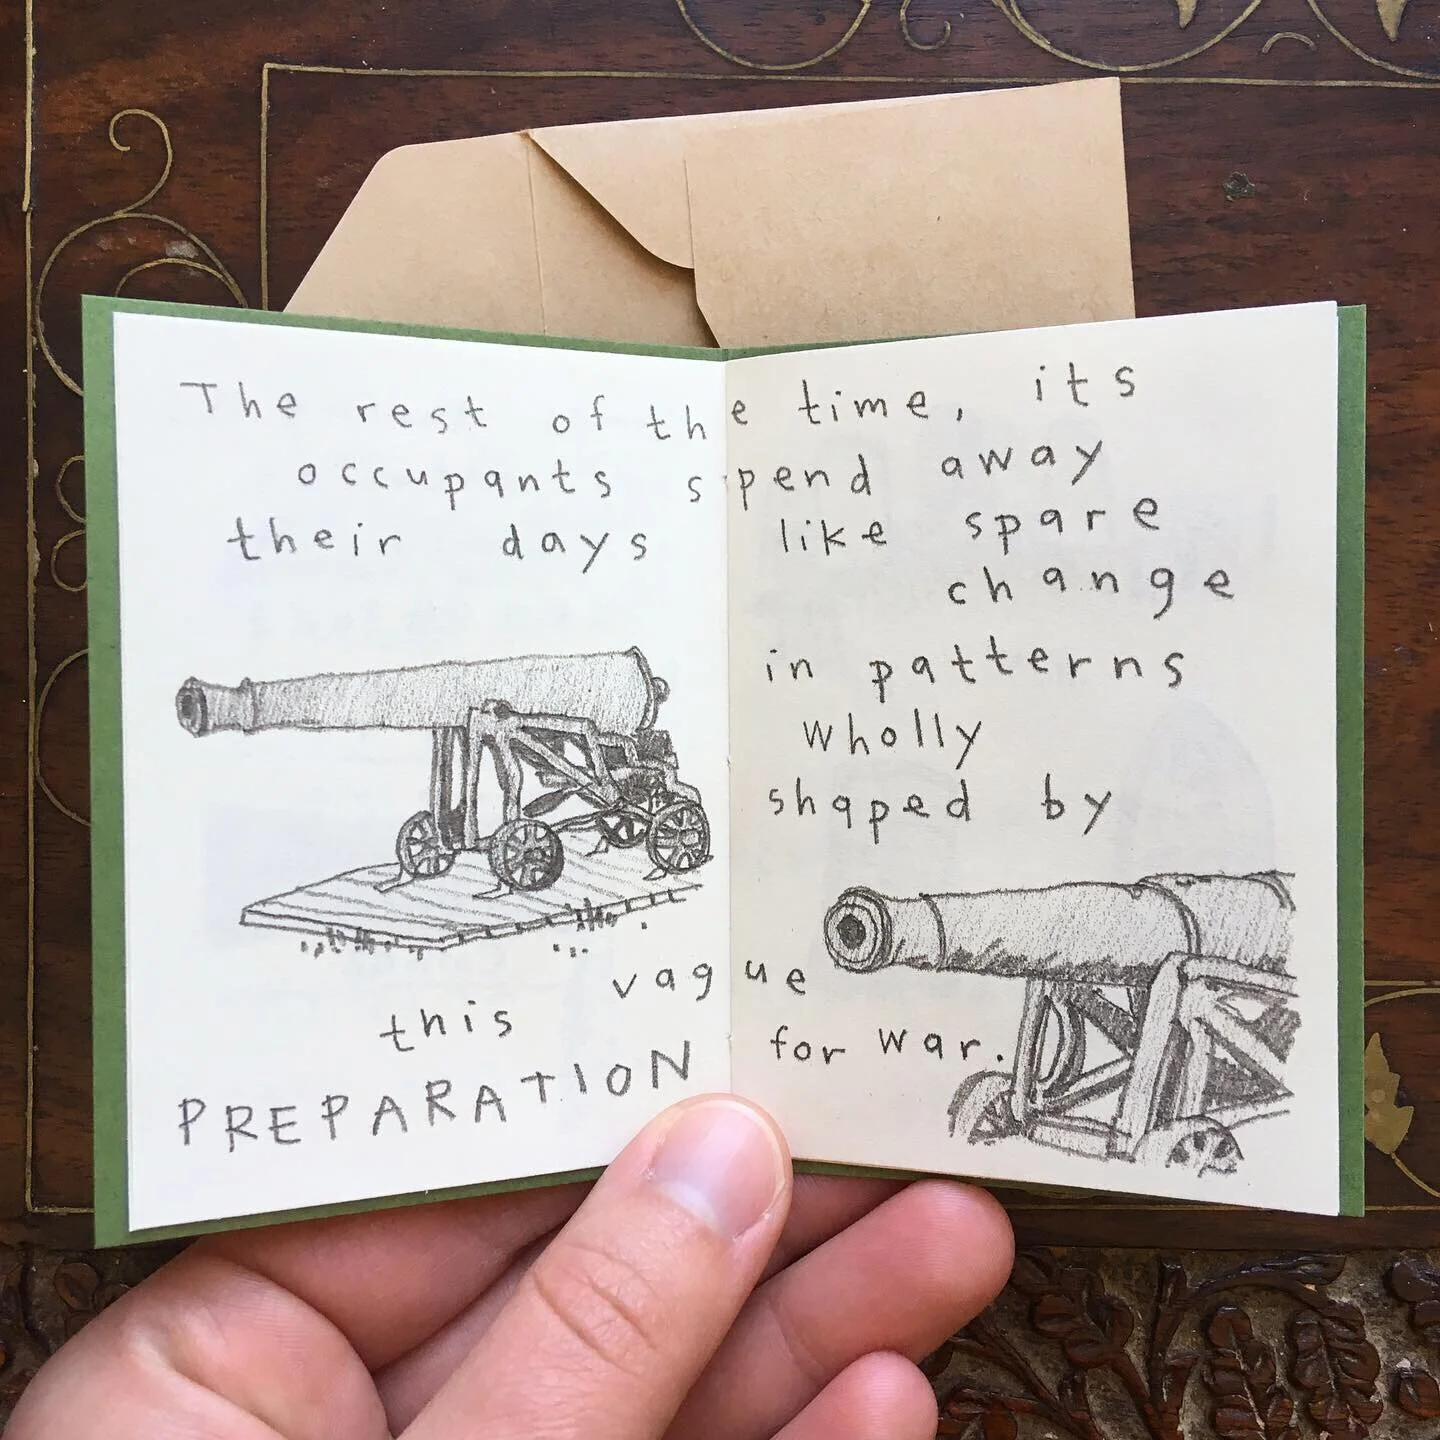 The rest of the time, its
occupants spend away
their days like spare
change
in patterns
wholly
shaped by
this vague
PREPARATION for war.